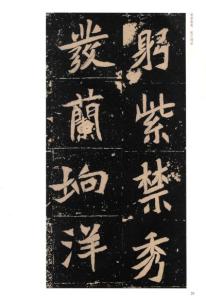 躬紫禁秀
發蘭坰洋